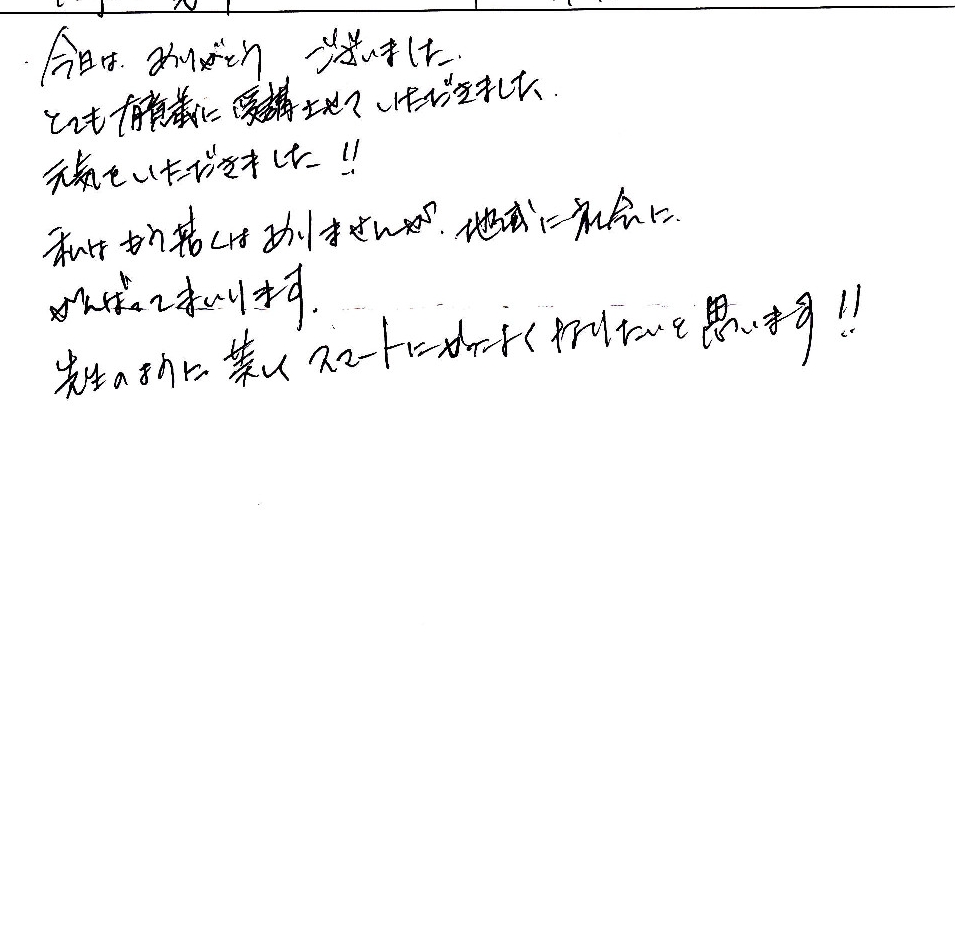 今日は ありがとう ございました.
とても有意義に受講させていただきました.
元気をいただきました!!
私はもう若くはありませんが、地域に社会に.
がんばってまいります.
先生のように楽しくスマートにかっこよくなりたいと思います!!